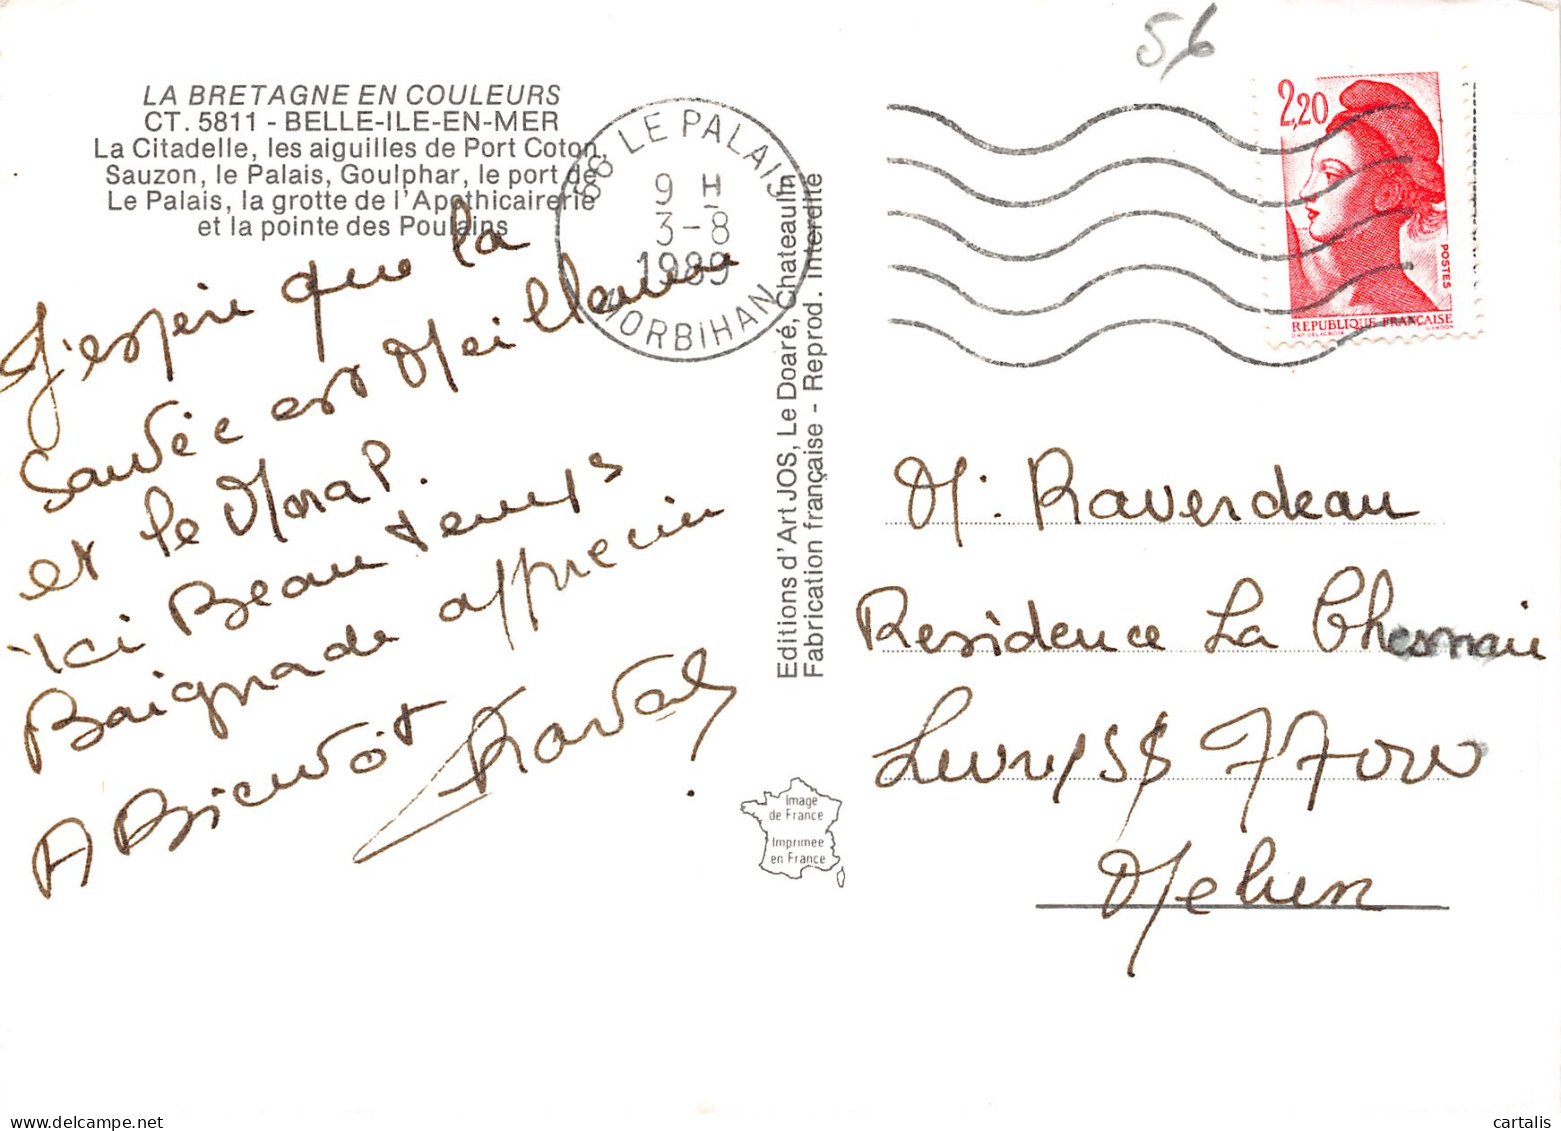 56
LA BRETAGNE EN COULEURS
CT. 5811 - BELLE-ILE-EN-MER
La Citadelle, les aiguilles de Port Coton,
Sauzon, le Palais, Goulphar, le port de
Le Palais, la grotte de l'Apothicairerie
et la pointe des Poulains
LE PALAIS
9 H
3-8
1989
MORBIHAN
2,20
POSTES
REPUBLIQUE FRANÇAISE
J'espère que la
Santée est Meilleure
et le Moral.
ici Beau temps
Baignade apprecier
A Bientôt
Editions d'Art JOS, Le Doaré, Chateaulin
Fabrication française - Reprod. Interdite
Image
de France
Imprimée
en France
M. Raverdeau
Residence La Chesnaie
77000
Melun
cartalis